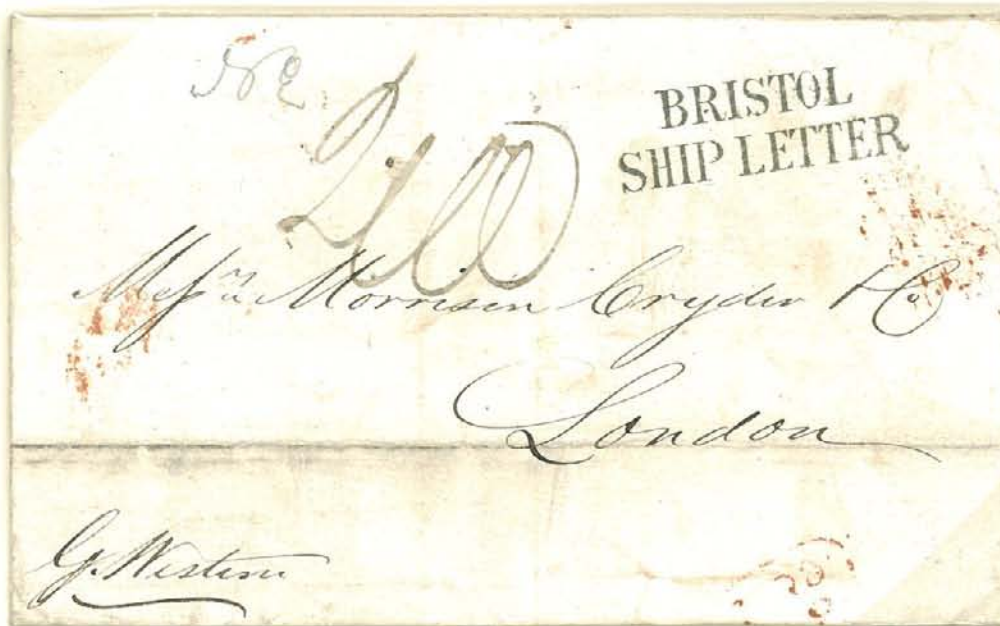 BRISTOL
SHIP LETTER
Messrs Morrison Cryder & Co
London
G. Western